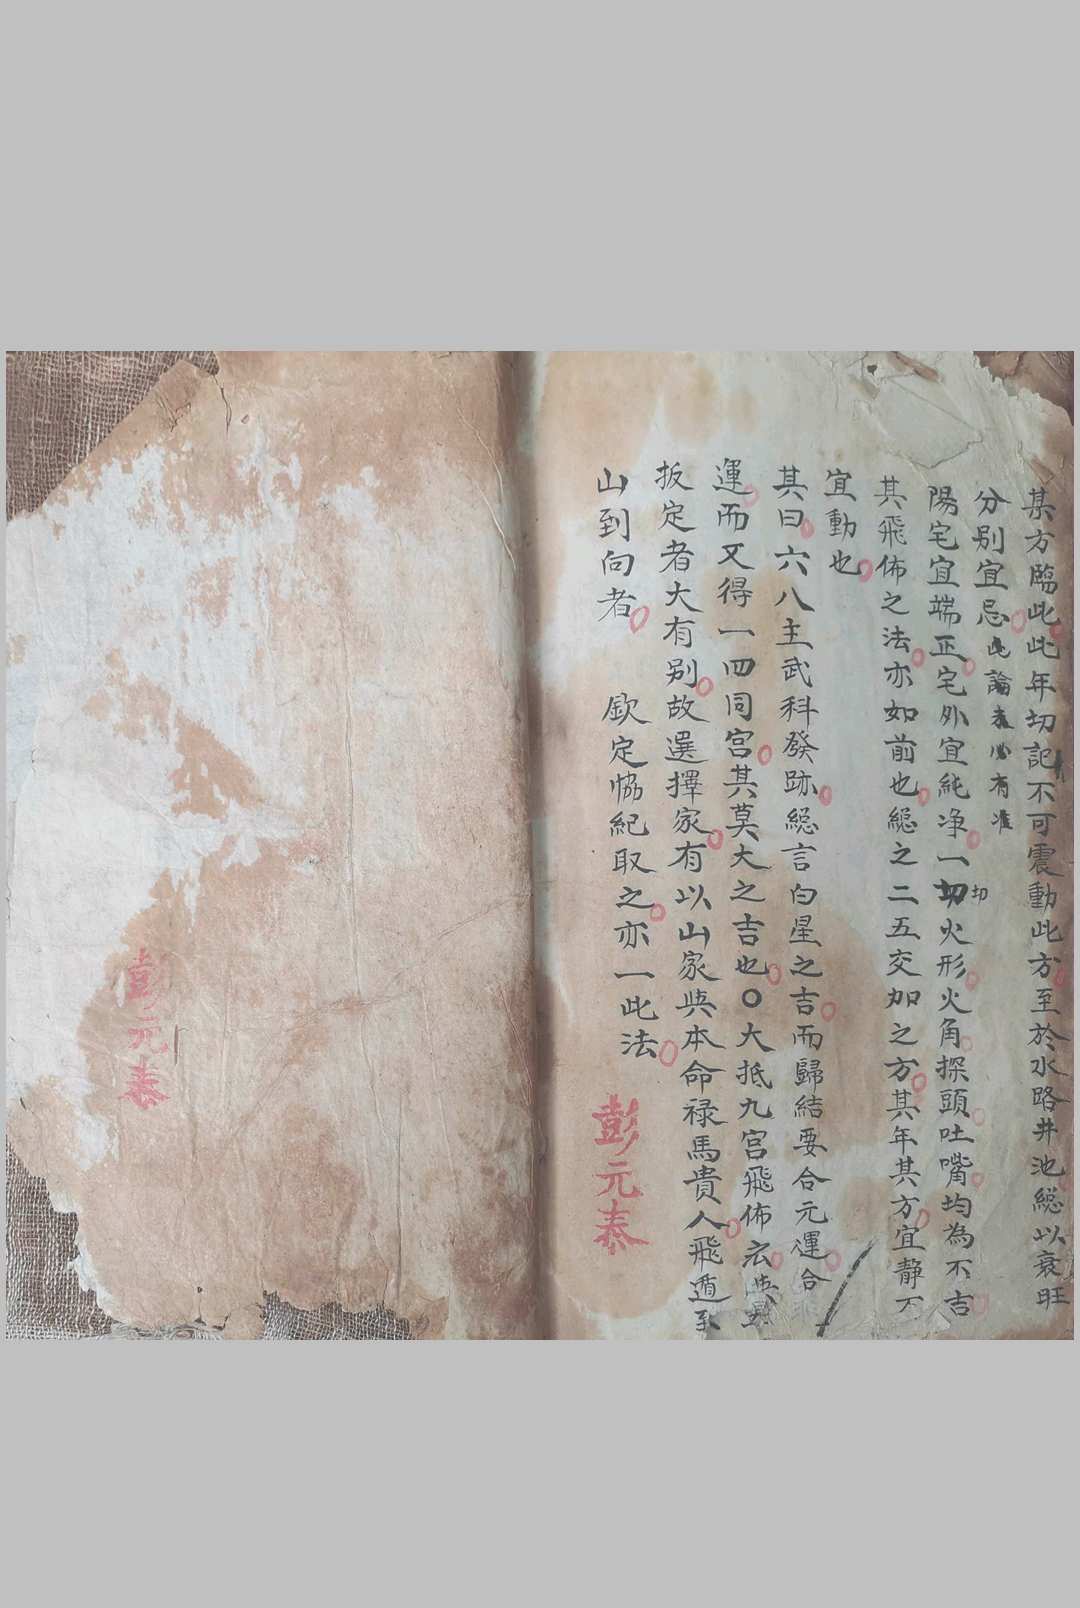 某方臨此此年切記不可震動此方至於水路井池総以衰旺
分别宜忌此論表必有准
陽宅宜端正宅外宜純净一切火形火角探頭吐嘴均為不吉
切
其飛佈之法亦如前也総之二五交加之方其年其方宜静不
宜動也
其曰六八主武科發跡総言白星之吉而歸結要合元運合
運而又得一四同宫其莫大之吉也〇大抵九宫飛佈
扳定者大有别故選擇家有以山家與本命禄馬貴人飛遁至
山到向者 欽定恊紀取之亦一此法
彭元泰
彭元泰